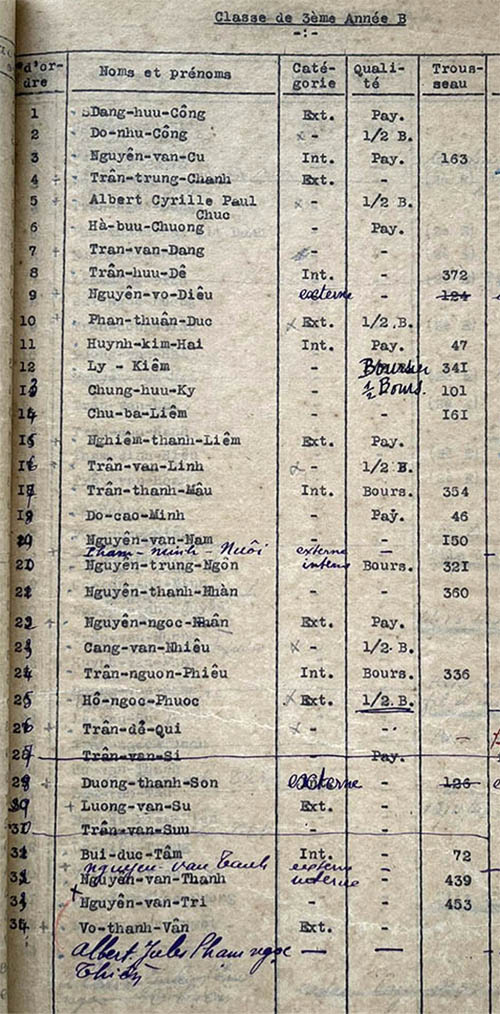 Classe de 3ème Année B
-:-
d'or-
dre
Noms et prénoms
Caté-
gorie
Quali-
té
Trous-
seau
1 Dang-huu-Công Ext. Pay.
2 Do-nhu-Công - 1/2 B.
3 Nguyên-van-Cu Int. Pay. 163
4 Trân-trung-Chanh Ext. -
5 Albert Cyrille Paul - 1/2 B.
Chuc
6 Hà-buu-Chuong Pay.
7 Tran-van-Dang - -
8 Trân-huu-Dê Int. - 372
9 Nguyên-vo-Diêu externe - 124
10 Phan-thuân-Duc Ext. 1/2 B.
11 Huynh-kim-Hai Int. Pay. 47
12 Ly - Kiêm - Boursier 341
13 Chung-huu-Ky - 1/2 Bours. 101
14 Chu-ba-Liêm - - 161
15 Nghiêm-thanh-Liêm Ext. Pay.
16 Trân-van-Linh - 1/2 B.
17 Trân-thanh-Mâu Int. Bours. 354
Do-cao-Minh - Pay. 46
Nguyên-van-Nam - - 150
Pham-minh-Nuôi externe -
Nguyên-trung-Ngôn interne Bours. 321
Nguyên-thanh-Nhàn - - 360
Nguyên-ngoc-Nhân Ext. Pay.
Cang-van-Nhiêu - 1/2 B.
Trân-nguon-Phiêu Int. Bours. 336
Hô-ngoc-Phuoc Ext. 1/2 B.
Trân-dê-Qui - -
Trân-van-Si - Pay.
Duong-thanh-Son externe - 126
Luong-van-Su Ext. -
Trân-van-Suu - -
Bui-duc-Tâm Int. - 72
nguyen-van Tanh externe -
Nguyên-van-Thanh interne - 439
Nguyên-van-Tri - - 453
Vo-thanh-Vân Ext. -
Albert Jules Pham ngoc — —
Thiên